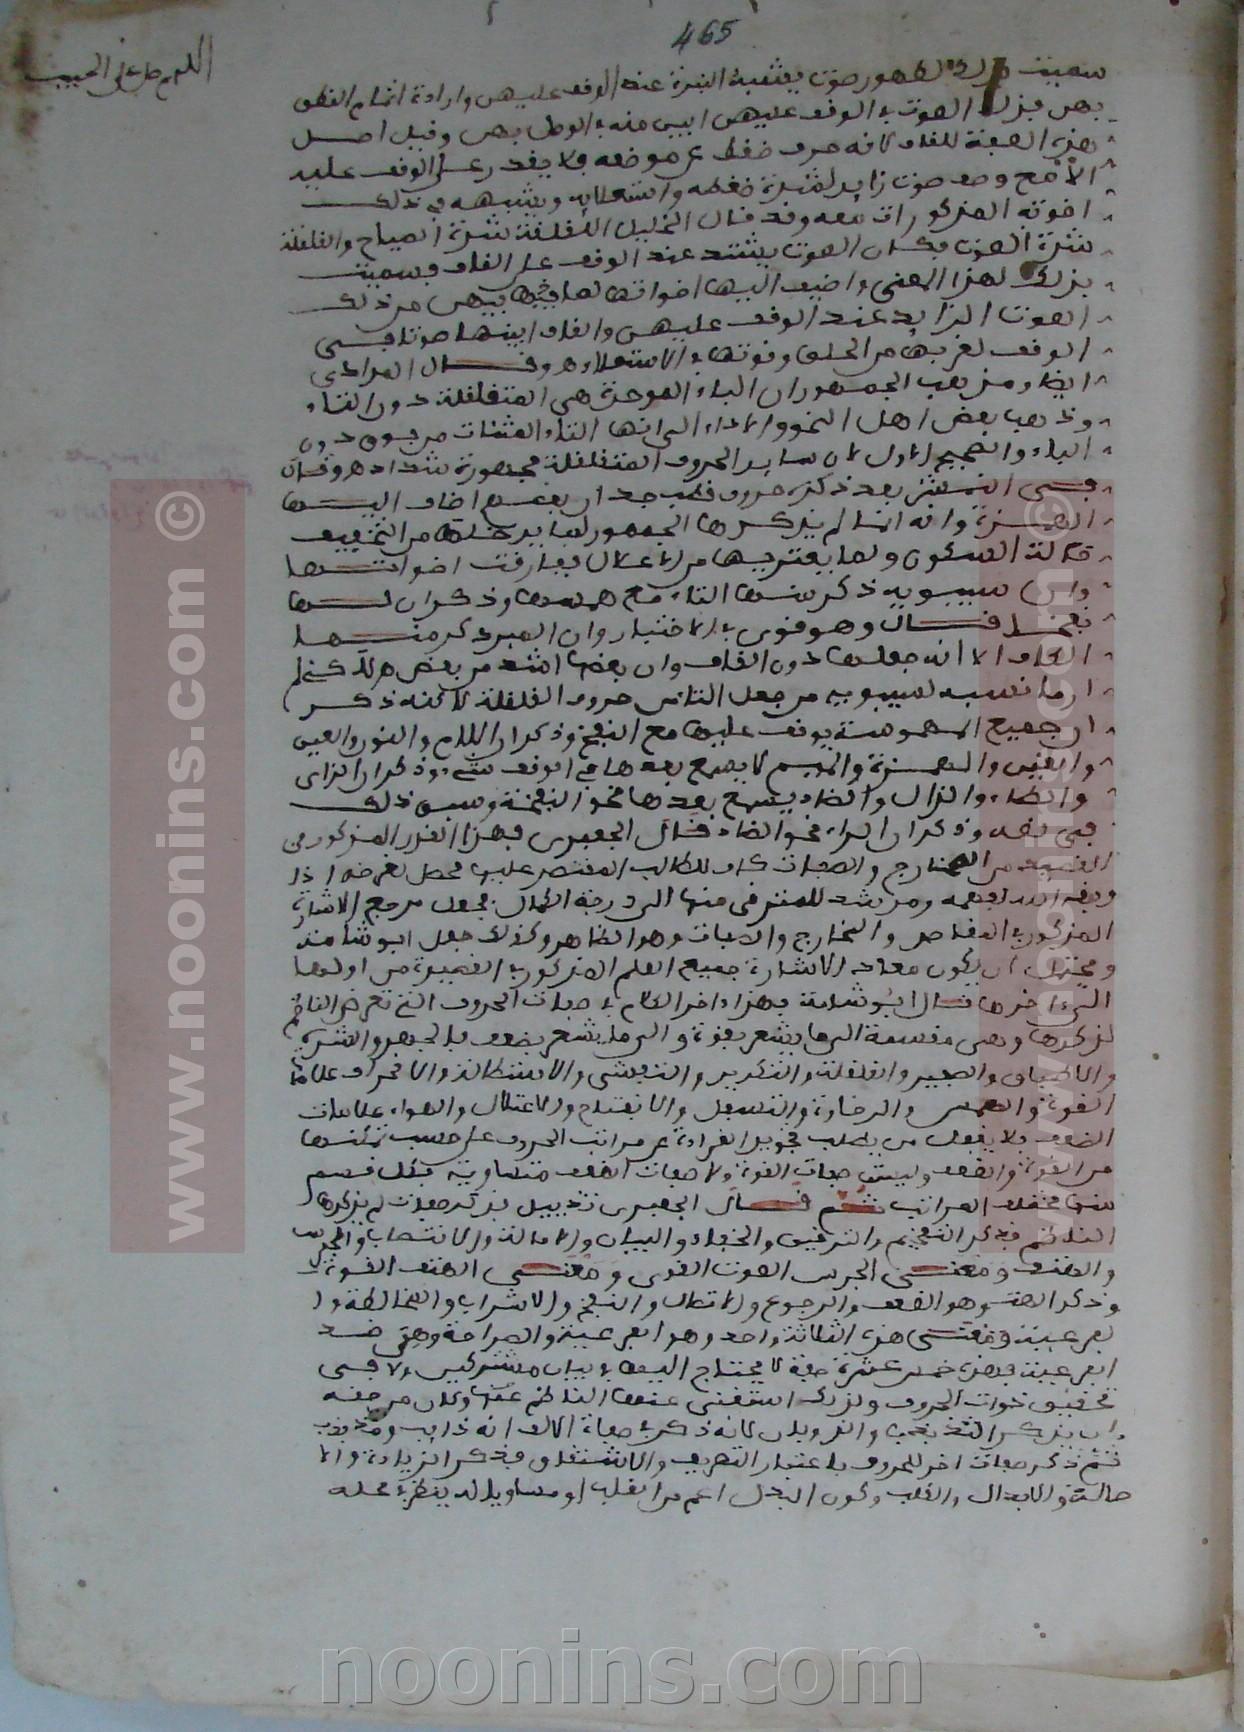 465
اللهم صل على الحبيب
سميت بذلك لظهور صوت يشبه النبرة عند الوقف عليهن وارادة اتمام النطق
بهن فذلك الصوت في الوقف عليهن ابين منه في الوصل بهن وقيل اصل
هذه الصفة للقاف لانه حرف ضغط عن موضعه فلا يقدر على الوقف عليه
الا مع صوت زايد لشدة ضغطه واستعلايه ويشبهه في ذلك
اخوته المذكورات معه وقد قال الخليل القلقلة شدة الصياح والقلقلة
شدة الصوت فكان الصوت يشتد عند الوقف على القاف فسميت
بذلك لهذا المعنى واضيف اليها اخواتها لما فيهن من ذلك
الصوت الزايد عند الوقف عليهن والقاف ابينها صوتا في
الوقف لقربها من الحلق وقوتها في الاستعلاء اهـ وقال المرادي
ايضا ومذهب الجمهور ان الباء الموحدة هي المتقلقلة دون التاء
وذهب بعض اهل النحو والاداء الى انها التاء المثناة من فوق دون
الباء والصحيح الاول لان ساير الحروف المتقلقلة مجهورة شداد اهـ وقال
في النشر بعد ذكره حروف قطب جد ان بعضهم اضاف اليها
الهمزة وانه انما لم يذكرها الجمهور لما يدخلها من التخفيف
حالة السكون ولما يعتريها من الاعلال ففارقت اخواتها
وان سيبويه ذكر منها التاء مع همسها وذكر ان لها
نفخا قال وهو قوي في الاختبار وان المبرد ذكر منها
الكاف الا انه جعلها دون القاف وان بعضها اشد من بعض
ما نسبه لسيبويه من جعل التاء من حروف القلقلة لاكنه ذكر
ان جميع المهموسة يوقف عليها مع النفخ وذكر ان اللام والنون والعين
والغين والهمزة والميم لا يسمع بعدها في الوقف شيء وذكر ان الزاي
والظاء والذال والضاد يسمع بعدها نحو النفخة وسبق ذلك
وذكر ان الراء نحو الضاد قال الجعبري فهذا القدر المذكور في
القصيد من المخارج والصفات كاف للطالب المقتصر عليه محصل لغرضه اذا
وفقه الله لفهمه ومرشد للمترقي منها الى درجة الكمال فجعل مرجع الاشارة
المذكور في المخارج والصفات وهو الظاهر وكذلك جعل ابو شامة
ويحتمل ان يكون معاد الاشارة جميع العلم المذكور في القصيدة من اولها
الى اخرها قال ابو شامة فهذا اخر الكلام في صفات الحروف التي تعرض الناظم
لذكرها وهي منقسمة الى ما يشعر بقوة والى ما يشعر بضعف فالجهر والشدة
والاطباق والصفير والقلقلة والتكرير والتفشي والاستطالة والانحراف علامات
القوة والهمس والرخاوة والتسفل والانفتاح والاعتلال والهواء علامات
الضعف فلا يغفل من يطلب تجويد القراءة عن مراتب الحروف على حسب تمكنها
من القوة والضعف وليست صفات القوة ولا صفات الضعف متساوية فكل قسم
منها مختلف المراتب ثم قال الجعبري تذييل نذكر صفات لم يذكرها
الناظم فذكر التفخيم والترقيق والخفاء والبيان والامالة والانتصاب والجرس
والهتف ومعنى الجرس الصوت القوي ومعنى الهتف القوة
وذكر الهت وهو الضعف والرجوع والاتصال والنفخ والاشراب والمخالطة وا
لفرعية ومعنى هذه الثلاثة واحد وهو الفرعية والصراحة وهي ضد
الفرعية فهذه خمس عشرة صفة لا يحتاج اليها في بيان مشتركين ولا في
تحقيق ذوات الحروف ولذلك استغنى عنها الناظم
ثم ذكر صفات اخر للحروف باعتبار التصريف والاشتقاق فذكر الزيادة والا
صالة والابدال والقلب وكون البدل اعم من القلب او مساويا له ينظر في محله
www.noonins.com ©
www.noonins.com ©
noonins.com